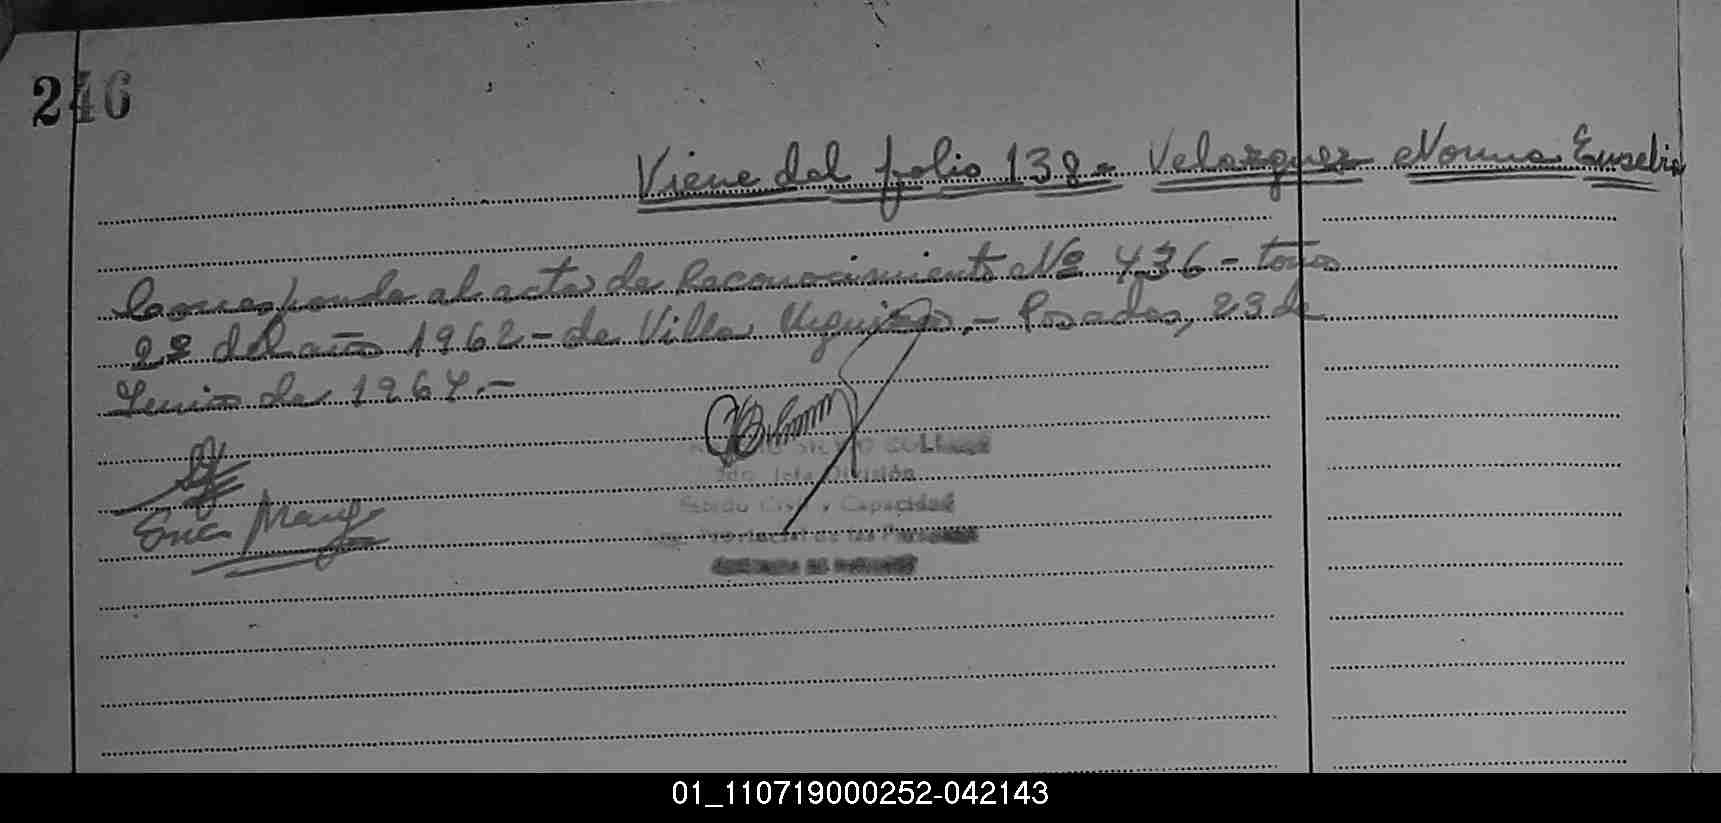 246
Viene del folio 138 - Velazquez Norma Eusebia
Corresponde al acta de Reconocimiento Nº 436 - tomo
2º del año 1962 - de Villa Urquiza. - Posadas, 23 de
Junio de 1964. -
Jefe División
Estado Civil y Capacidad
Provincial de las Personas
01_110719000252-042143